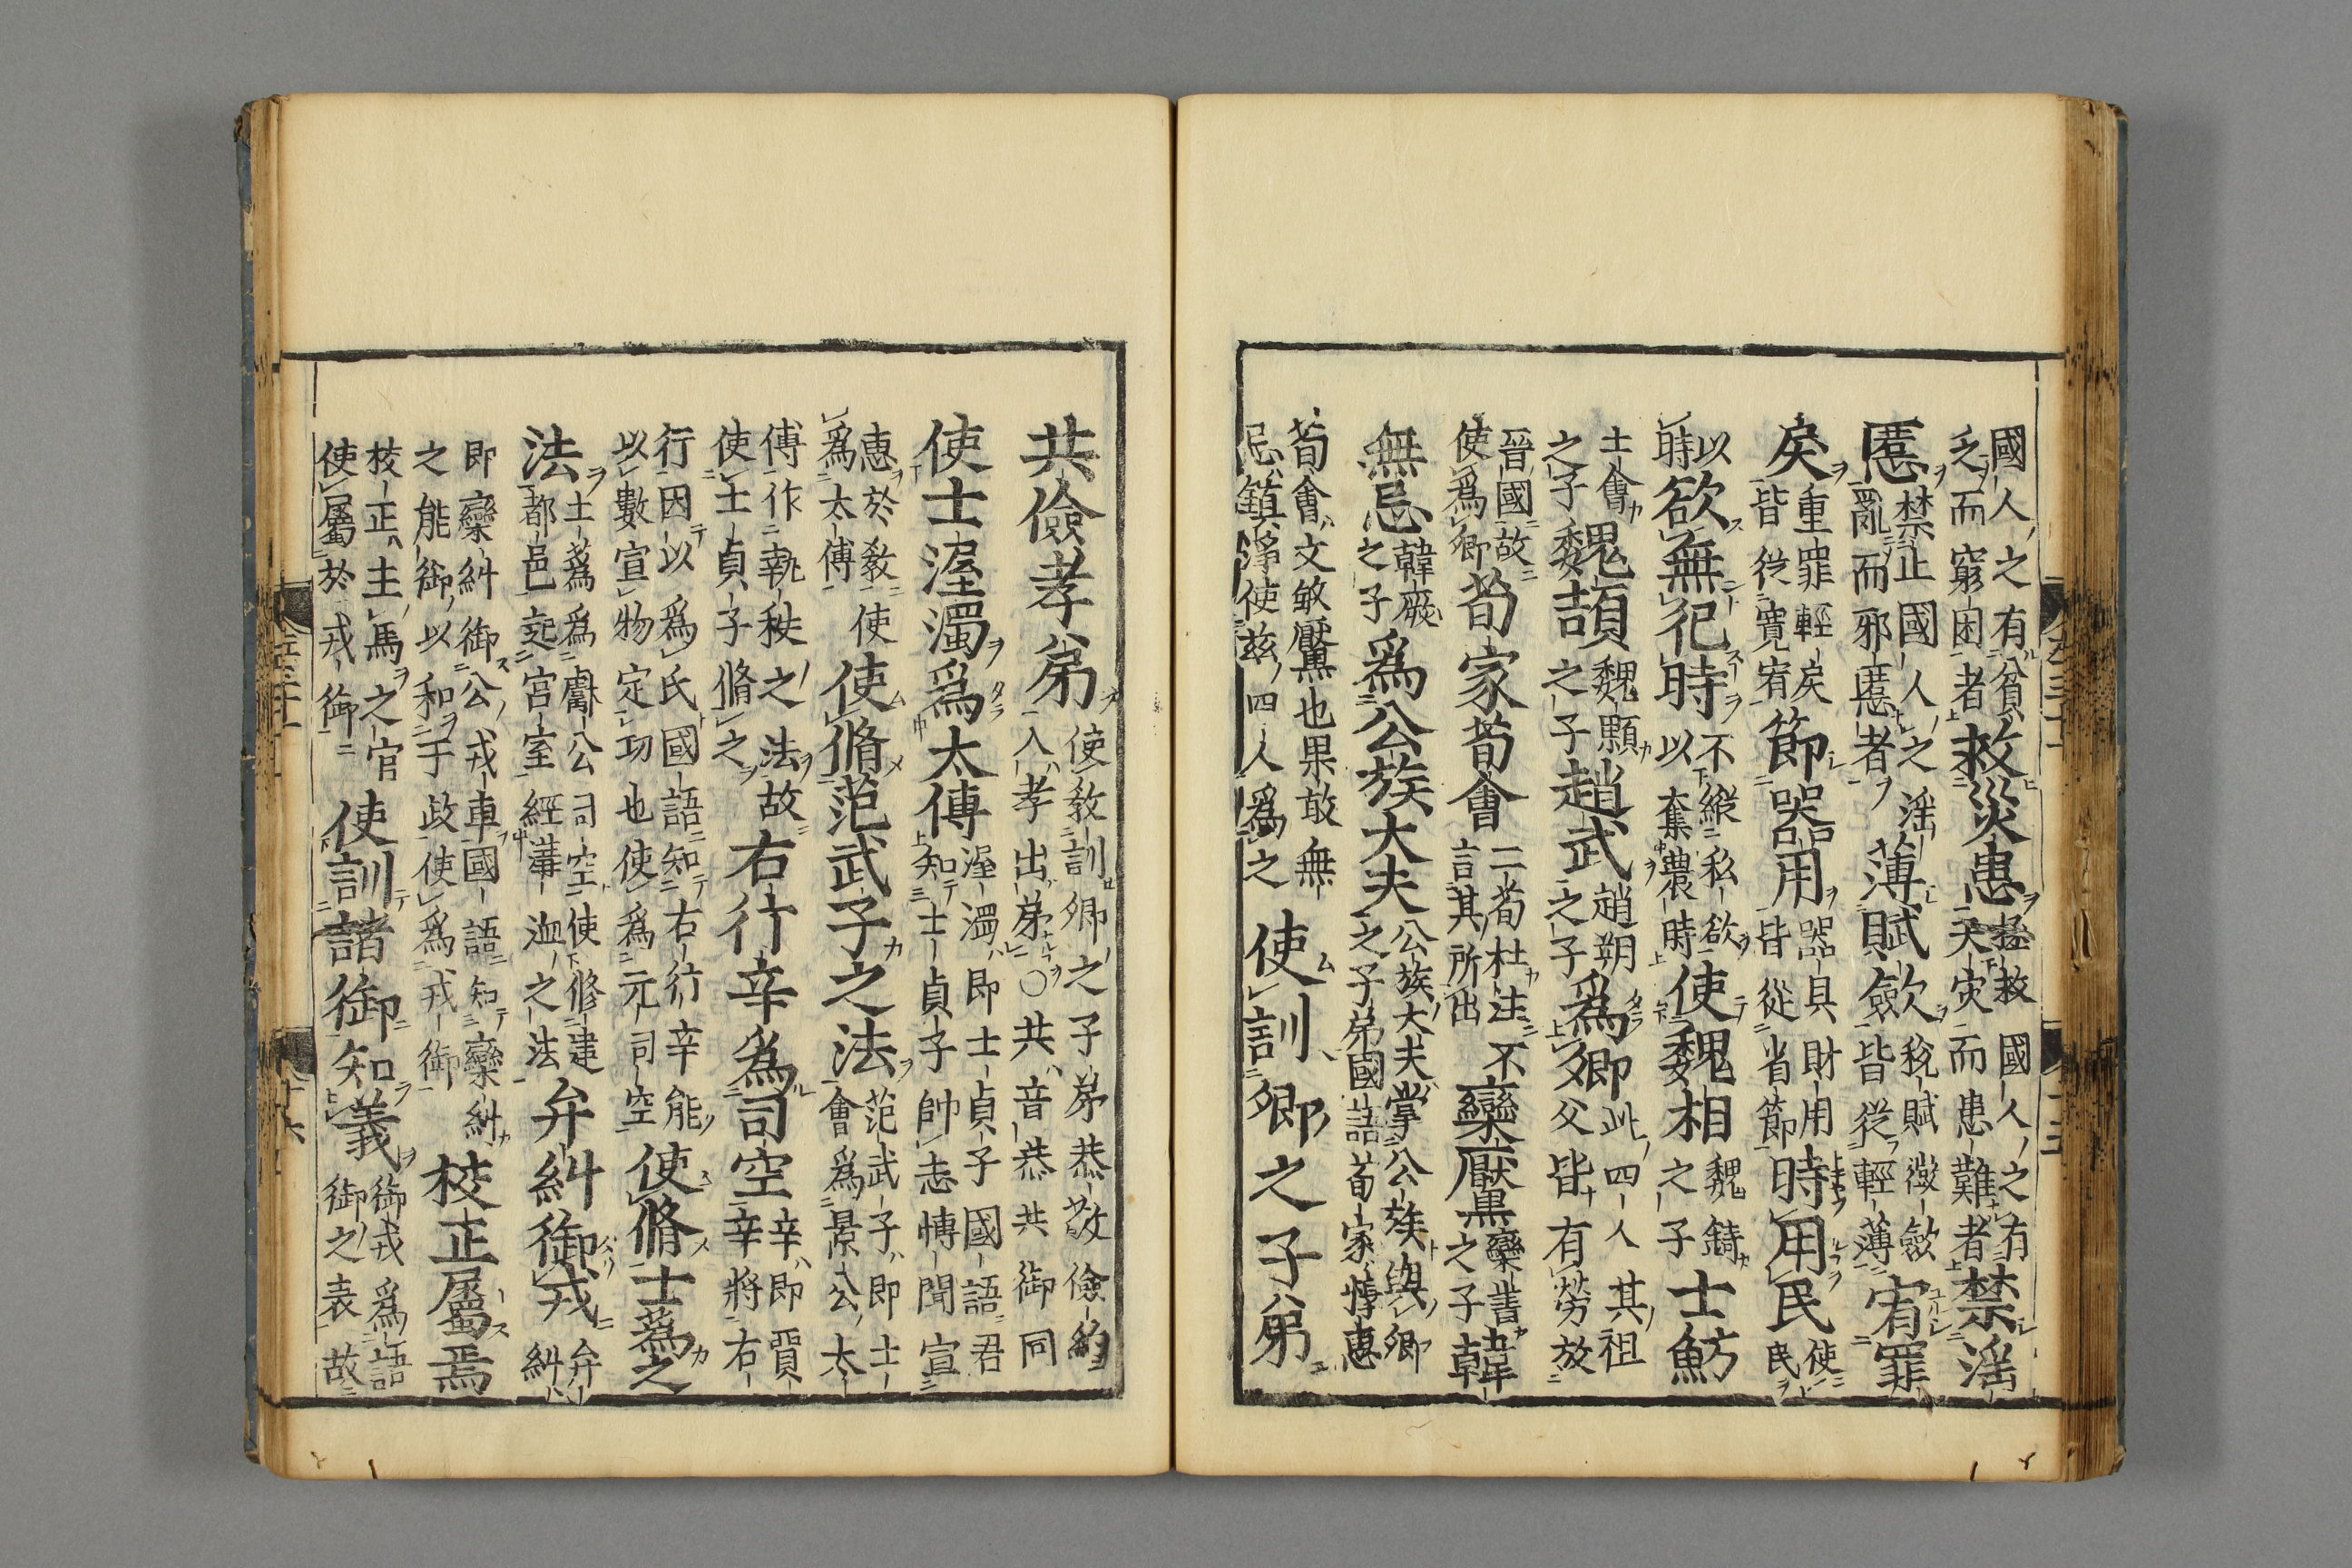 國人之有貧乏而窮困者救災患拯救國人之有天灾而患難者禁淫
慝禁止國人之淫亂而邪慝者薄賦斂稅賦徵斂皆從輕薄宥罪
戾重罪輕戾皆從寬宥節器用器具財用皆從省節時用民使民
以時欲無犯時不縱私欲以奪農時使魏相魏錡之子士魴
士會之子魏頡魏顆之子趙武趙朔之子爲卿此四人其祖父皆有勞放
晉國故使爲卿荀家荀會二荀杜注不言其所出欒黶欒書之子韓
無忌韓厥之子爲公族大夫公族大夫掌公族與卿之子弟國語荀家惇惠
荀會文敏黶也果敢無忌鎮靜使兹四人爲之使訓卿之子弟
共儉孝弟使教訓卿之子弟恭敬儉約入孝出弟○共音恭共御同
使士渥濁爲太傅渥濁即士貞子國語君知士貞子帥志博聞宣
惠於教使爲太傅使脩范武子之法范武子即士會爲景公太
傅作執秩之法故使士貞子脩之右行辛爲司空辛即賈辛將右
行因以爲氏國語知右行辛能以數宣物定功也使爲元司空使脩士蒍之
法士蒍爲獻公司空使修建都邑起宮室經溝洫之法弁糾御戎弁糾
即欒糾御公戎車國語知欒糾之能御以和于政使爲戎御校正屬焉
校正主馬之官使屬於戎御使訓諸御知義御戎爲諸御之表故